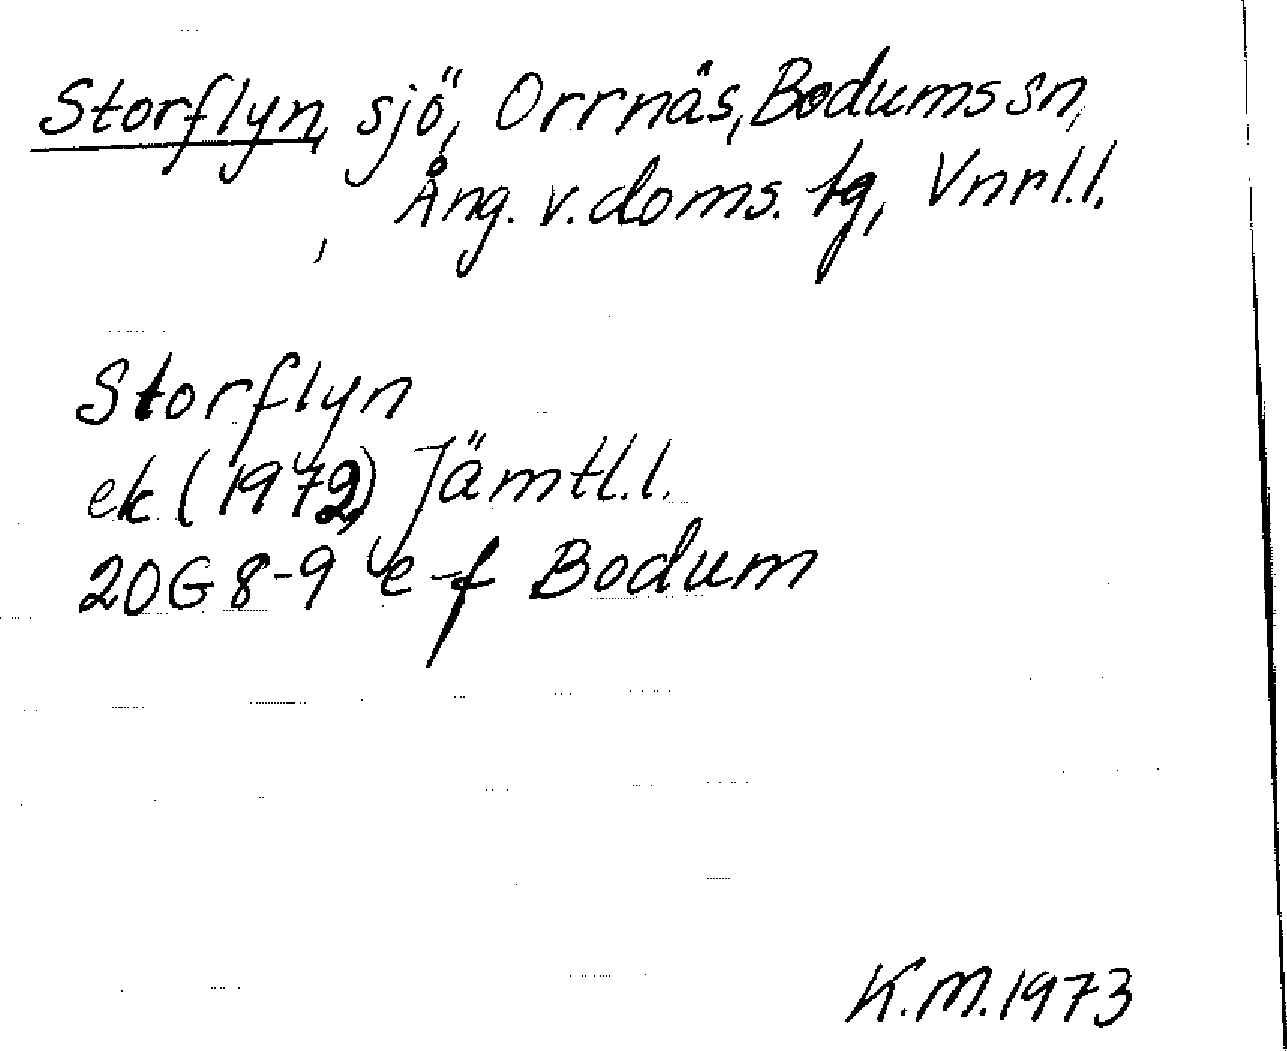 Storflyn, sjö, Orrnäs, Bodums sn,
Ång. v. doms. tg, Vnrl.l.
Storflyn
ek (1972) Jämtl.l.
20G 8-9 e-f Bodum
K.M. 1973